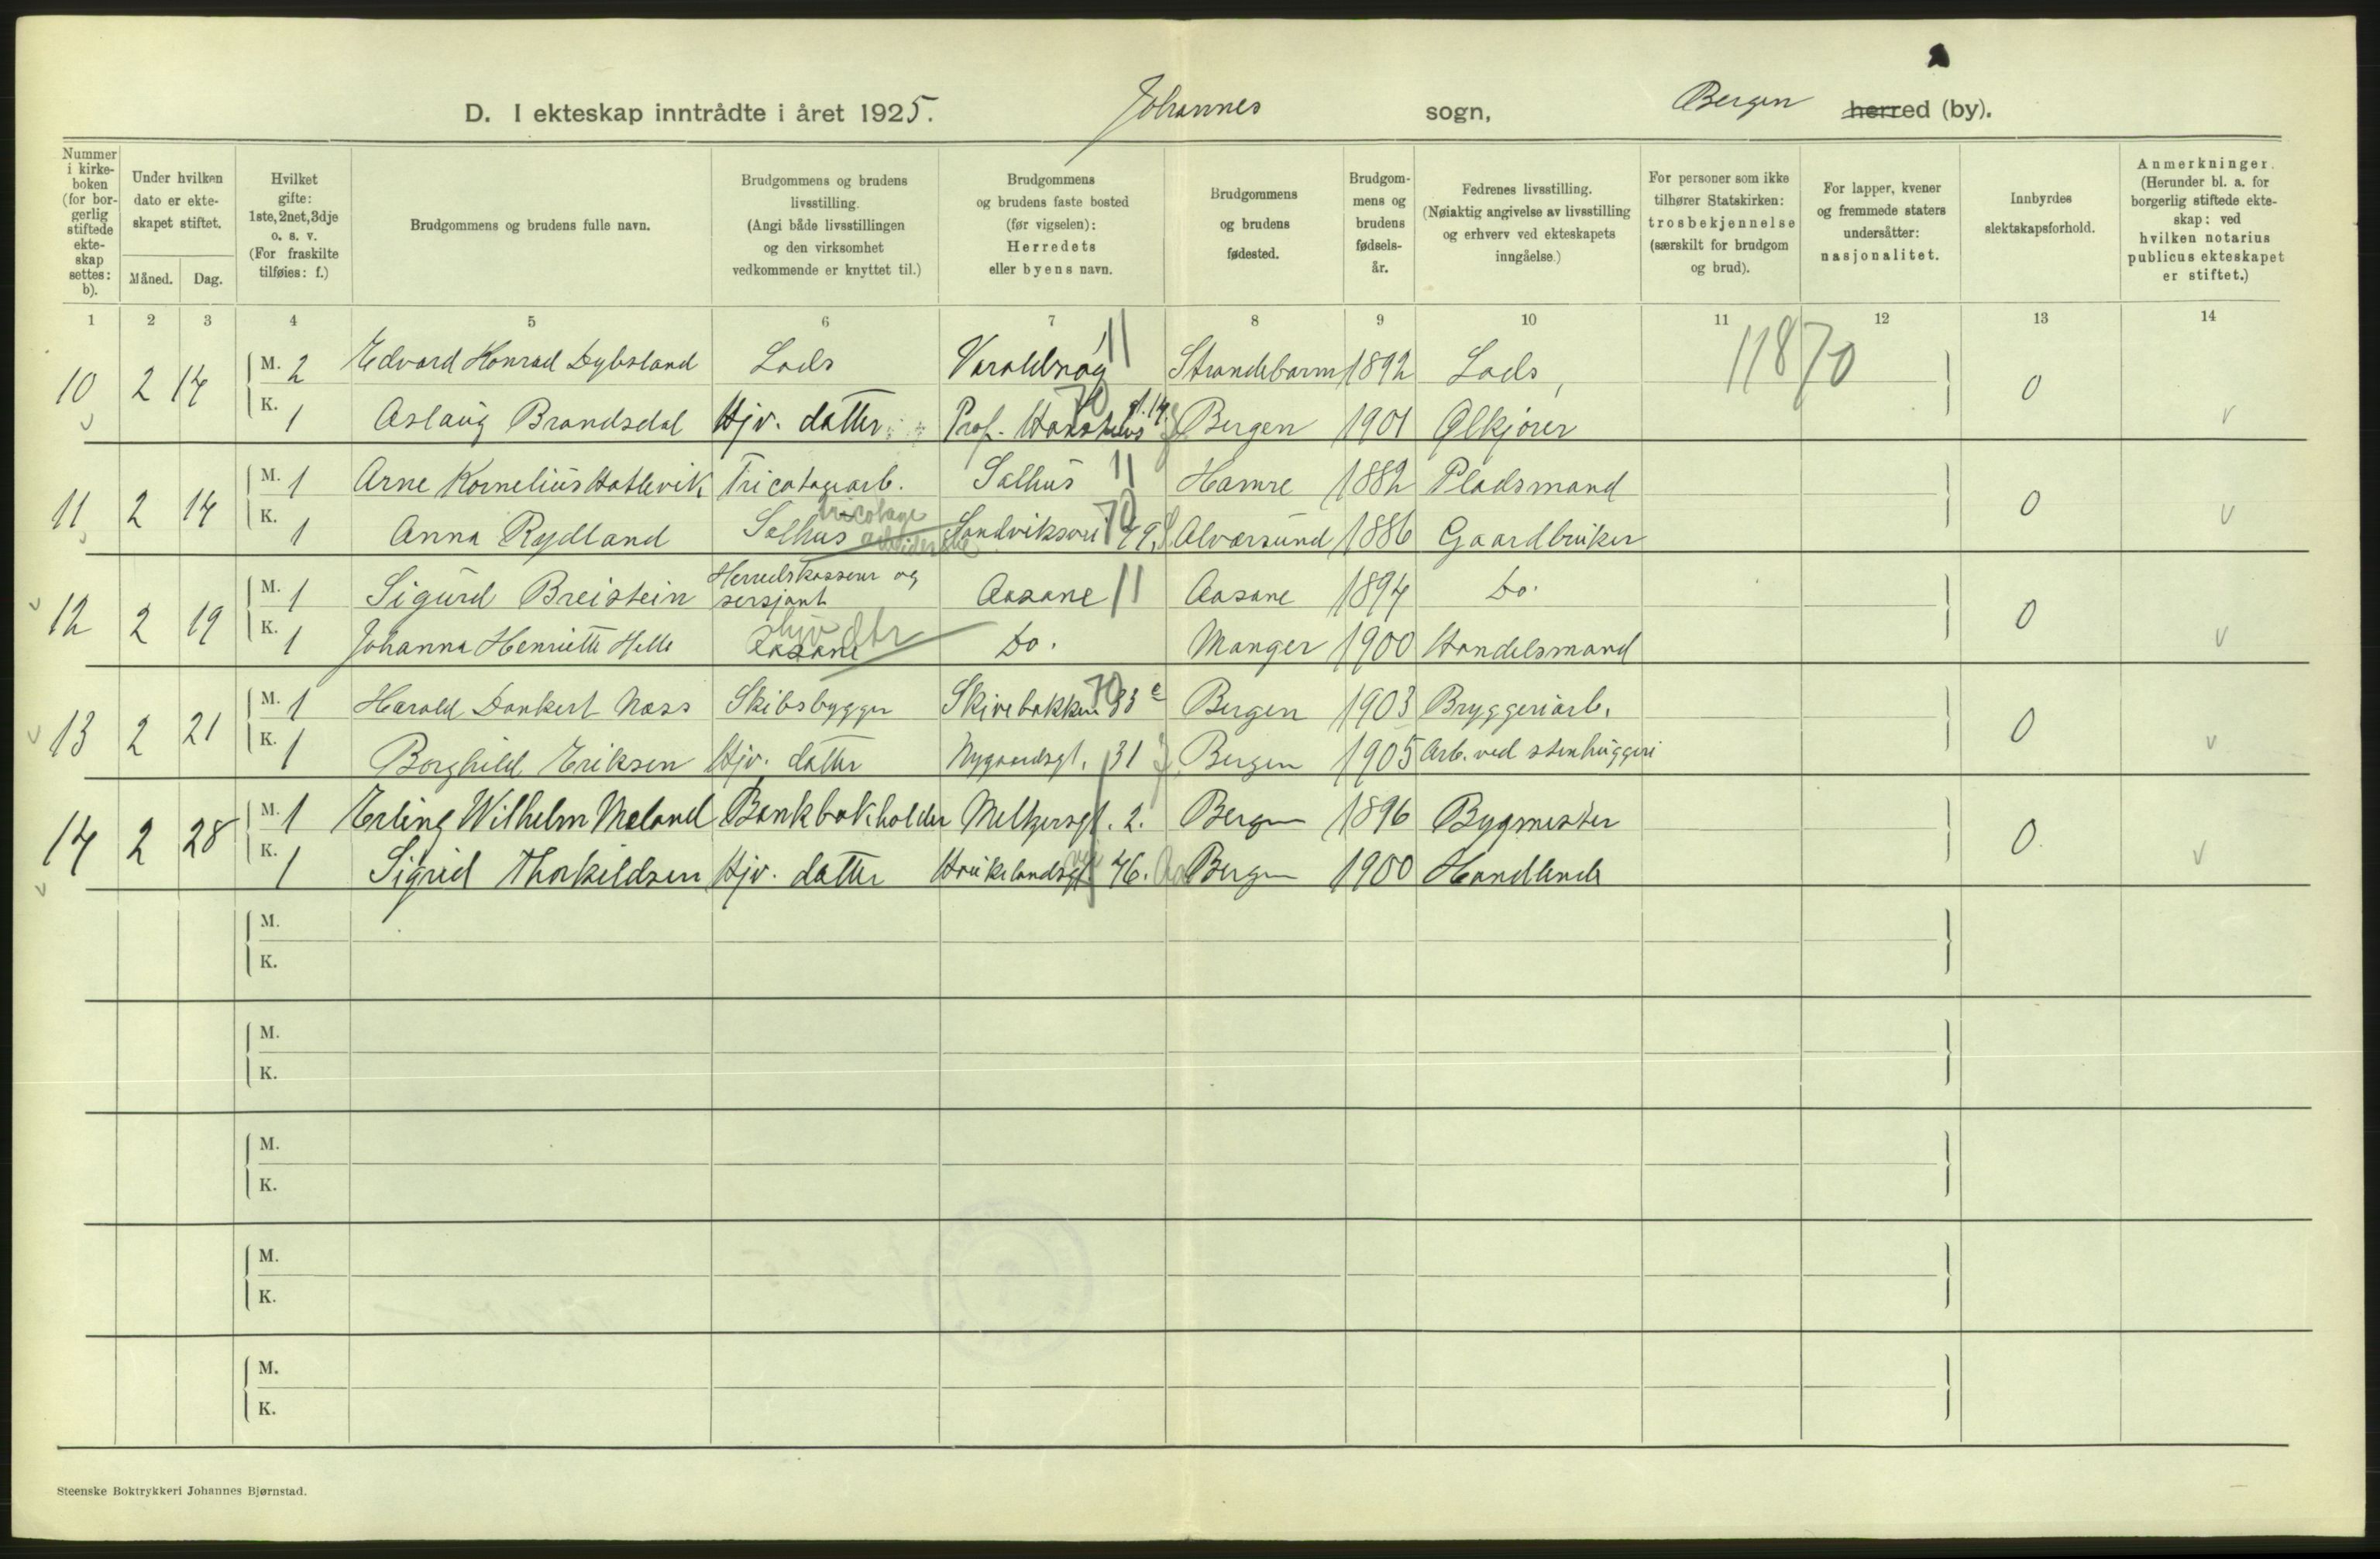 D. I ekteskap inntrådte i året 1925. Johannes sogn, Bergen herred (by).
Nummer i kirkeboken (for borgerlig stiftede ekteskap settes: b).
Under hvilken dato er ekteskapet stiftet.
Måned. Dag.
Hvilket gifte: 1ste, 2net, 3dje o. s. v. (For fraskilte tilføies: f.)
Brudgommens og brudens fulle navn.
Brudgommens og brudens livsstilling. (Angi både livsstillingen og den virksomhet vedkommende er knyttet til.)
Brudgommens og brudens faste bosted (før vigselen): Herredets eller byens navn.
Brudgommens og brudens fødested.
Brudgommens og brudens fødselsår.
Fedrenes livsstilling. (Nøiaktig angivelse av livsstilling og erhverv ved ekteskapets inngåelse.)
For personer som ikke tilhører Statskirken: trosbekjennelse (særskilt for brudgom og brud).
For lapper, kvener og fremmede staters undersåtter: nasjonalitet.
Innbyrdes slektskapsforhold.
Anmerkninger. (Herunder bl. a. for borgerlig stiftede ekteskap: ved hvilken notarius publicus ekteskapet er stiftet.)
1 2 3 4 5 6 7 8 9 10 11 12 13 14
10 2 14 M. 2 Edvard Konrad Dybsland Lods Varaldsøy 11 Strandebarm 1892 Lods 11870 0
K. 1 Aslaug Brandsdal Hjv. datter Prof. 70 Bergen 1901 Ølkjører v
11 2 14 M. 1 Arne Kornelius Hatlevik Tricotagearb. Salhus 11 Hamre 1882 Pladsmand 0
K. 1 Anna Rydland Salhus tricotage arbeiderske Sandviksvei 70 Alversund 1886 Gaardbruker v
12 2 19 M. 1 Sigurd Breistein Herredskasserer og sersjant Aasane 11 Aasane 1894 Do. 0
K. 1 Johanna Henriette Helle Aasane hjv dtr Do. Manger 1900 Handelsmand v
13 2 21 M. 1 Harald Dankert Næss Skibsbygger Skivebakken 33 c 70 Bergen 1903 Bryggeriarb. 0
K. 1 Borghild Eriksen Hjv. datter Nygaardsgt. 31 Bergen 1905 Arb. ved stenhuggeri v
14 2 28 M. 1 Erling Wilhelm Meland Bankbokholder Meltzersgt. 2. Bergen 1896 Bygmester 0
K. 1 Sigrid Thorkildsen Hjv. datter Haukelandsgt. vei 46. Bergen 1900 Handlende v
M.
K.
M.
K.
M.
K.
M.
K.
M.
K.
Steenske Boktrykkeri Johannes Bjørnstad.